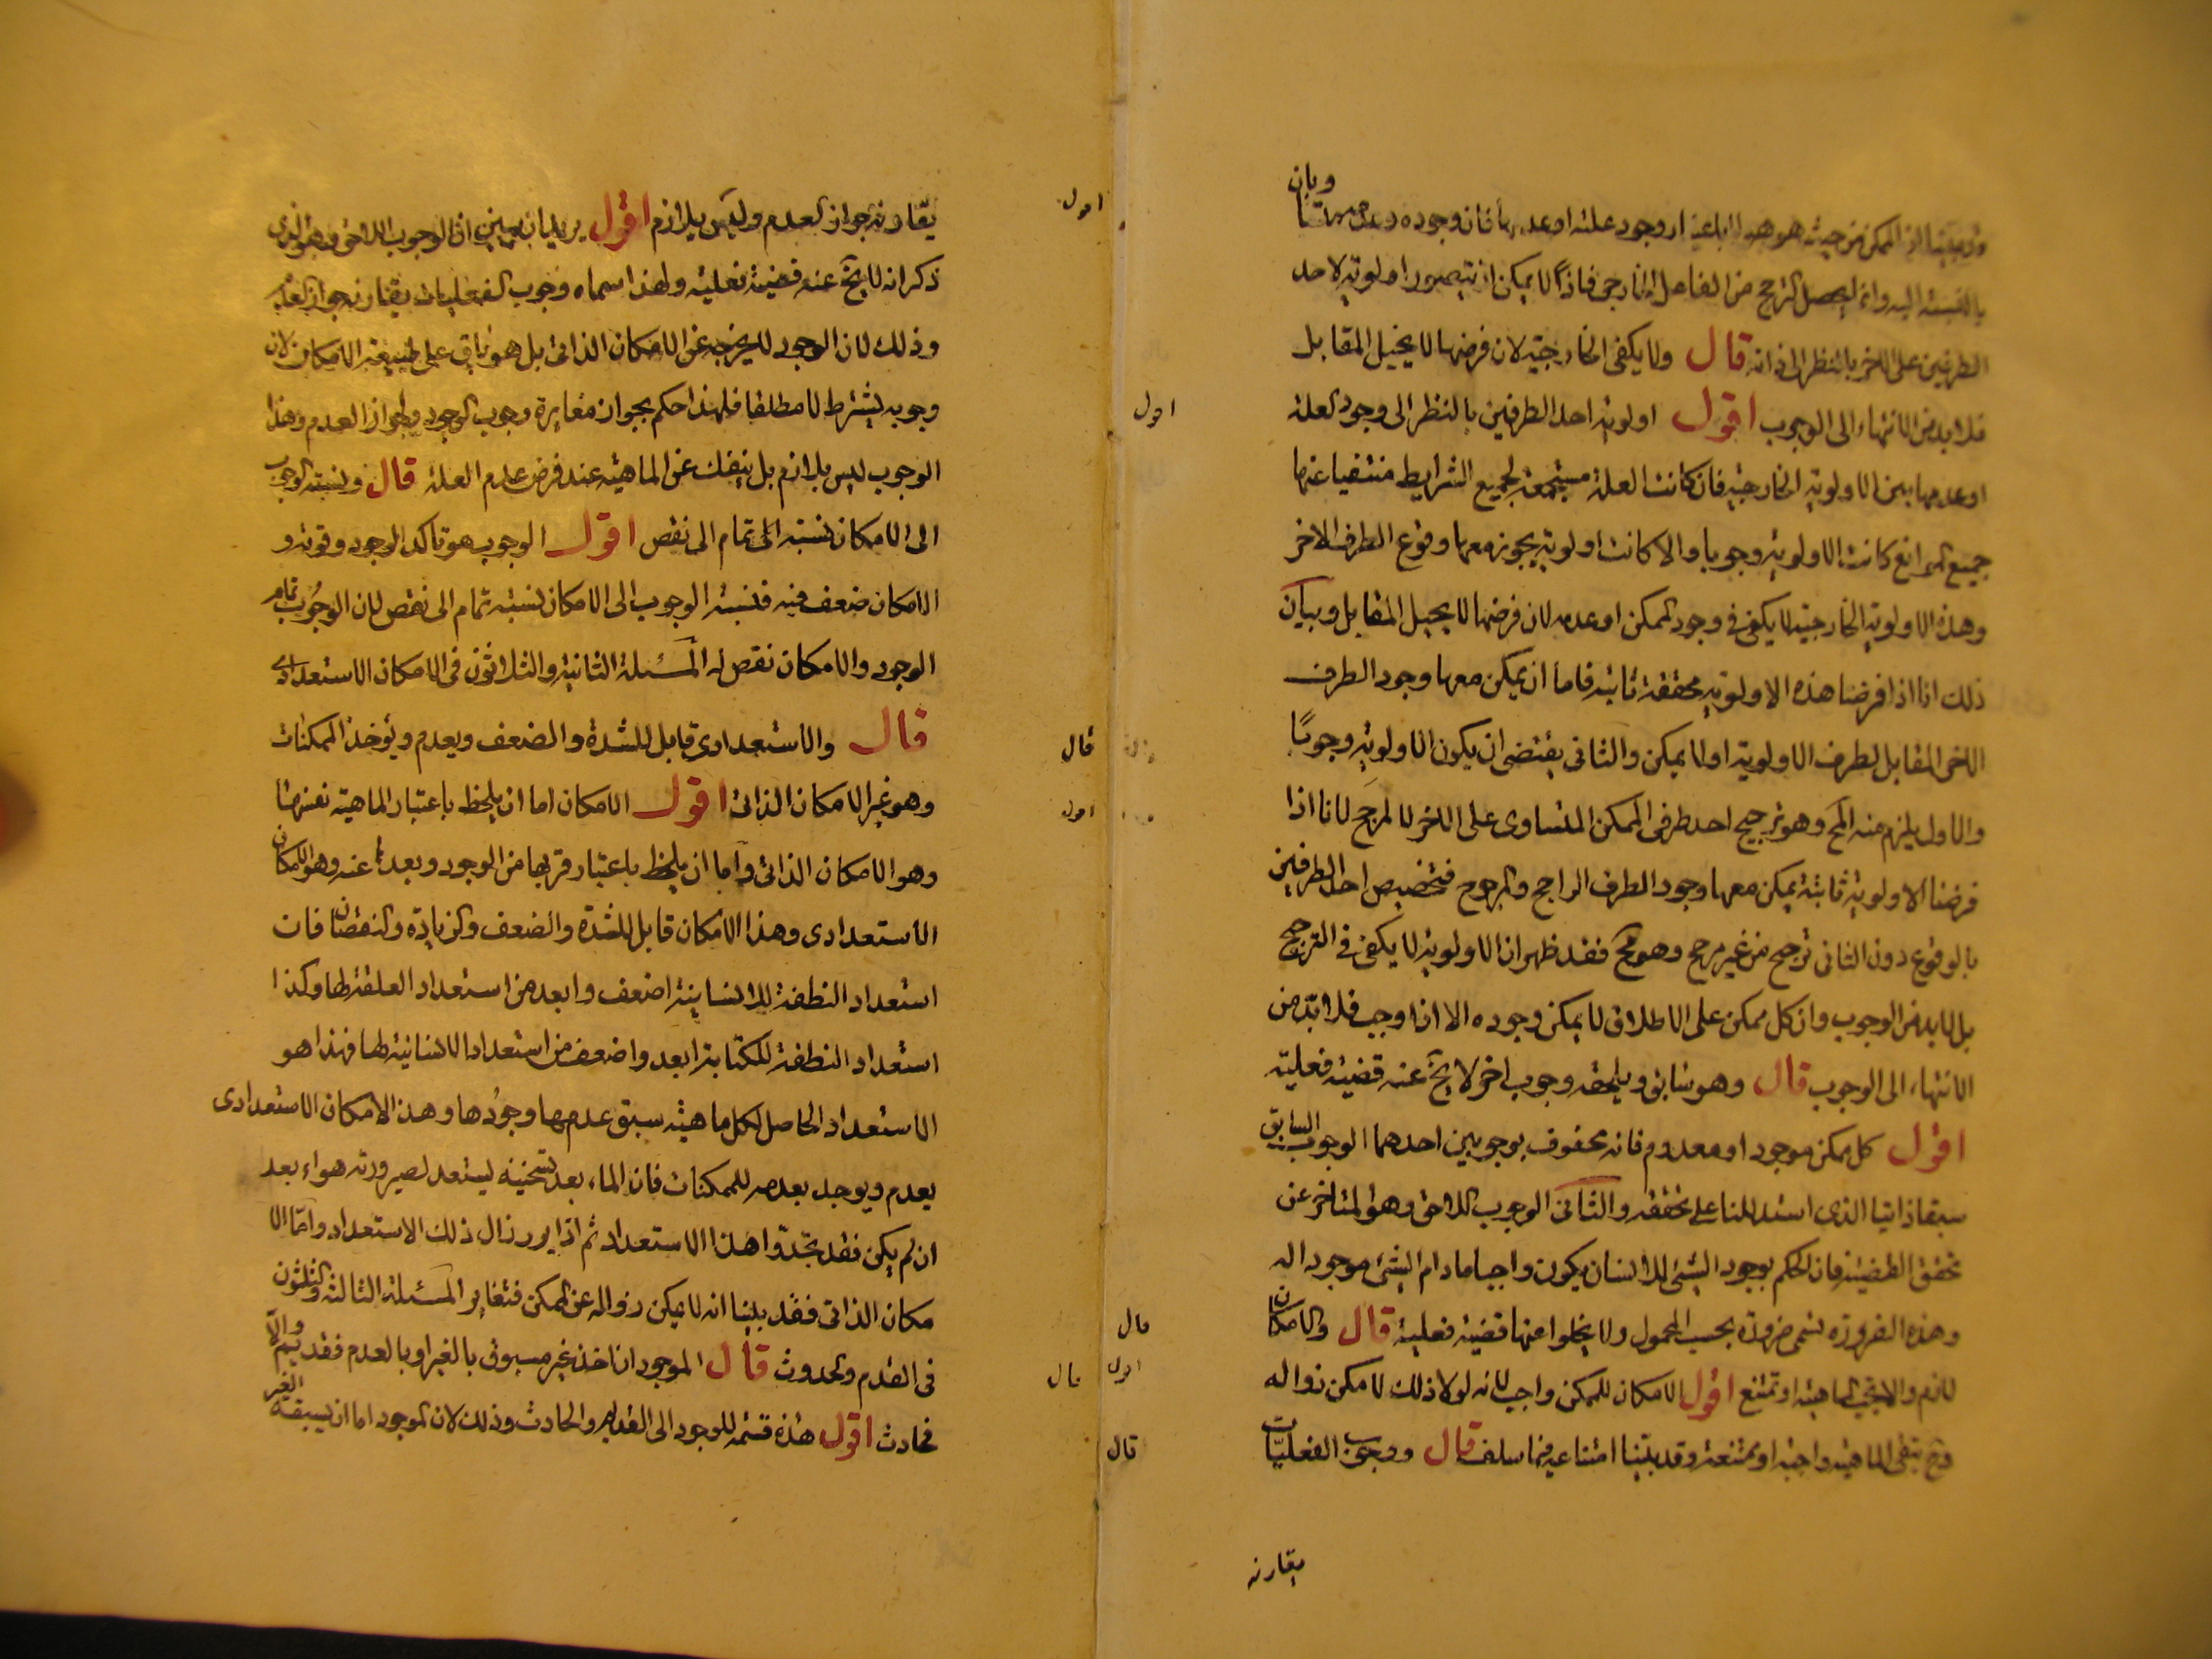 وبان
وقد بينا ان الممكن من حيث هو هو لا باعتبار وجود علته او عدمها فان وجوده وعدمه متساويان
بالنسبة اليه وانما يحصل الترجيح من الفاعل الخارجي فاذا لا يمكن ان تتصور اولوية لاحد
الطرفين على الاخر بالنظر الى ذاته قال ولا يكفى الخارجية لان فرضها لا يحيل المقابل
فلا بد من الانتهاء الى الوجوب اقول اولوية احد الطرفين بالنظر الى وجود العلة
او عدمها هى الاولوية الخارجية فان كانت العلة مستجمعة لجميع الشرايط منتفيا عنها
جميع الموانع كانت الاولوية وجوبا والا كانت اولوية يجوز معها وقوع الطرف الاخر
وهذه الاولوية الخارجية لا يكفى في وجود الممكن او عدمه لان فرضها لا يحيل المقابل وبيان
ذلك انا اذا فرضنا هذه الاولوية محققة ثابتة فاما ان يمكن معها وجود الطرف
الاخر المقابل لطرف الاولوية او لا يمكن والثانى يقتضى ان يكون الاولوية وجوبًا
والاول يلزم منه المح وهو ترجيح احد طرفى الممكن المتساوى على الاخر لا لمرجح لانا اذا
فرضنا الاولوية ثابتة يمكن معها وجود الطرف الراجح والمرجوح فتخصيص احد الطرفين
بالوقوع دون الثانى ترجيح من غير مرجح وهو مح فقد ظهر ان الاولوية لا يكفى فى الترجيح
بل لا بد من الوجوب وان كل ممكن على الاطلاق لا يمكن وجوده الا اذا وجب فلا بد من
الانتهاء الى الوجوب قال وهو سابق ويلحقه وجوب اخر لا يخ عنه قضية فعلية
اقول كل ممكن موجود او معدوم فانه محفوف بوجوبين احدهما الوجوب السابق
سبقا ذاتيا الذى استدللنا على تحققه والثانى الوجوب اللاحق وهو المتاخر عن
تحقق القضية فان الحكم بوجود الشئ للانسان يكون واجبا مادام الشئ موجودا له
وهذه الضرورة تسمى ضرورة بحسب المحمول ولا يخلوا عنها قضية فعلية قال والامكان
لازم والا تجب الماهية او تمتنع اقول الامكان للممكن واجب لانه لولا ذلك لامكن زواله
وح تبقى الماهية واجبة او ممتنعة وقد بينا امتناعه فيما سلف قال ووجوب الفعليات
يقارنه
اقول
قال
اقول
قال
يقارنه جواز العدم وليس بلازم اقول يريد ان يبين ان الوجوب اللاحق وهو الذى
ذكر انه لا يخ عنه قضية فعلية ولهذا سماه وجوب الفعليات يقارنه جواز العدم
وذلك لان الوجوب لا يخرجه عن الامكان الذاتى بل هو باق على طبيعة الامكان لان
وجوبه بشرط لا مطلقا فلهذا حكم بجواز مغايرة وجوب الوجود لجواز العدم وهذا
الوجوب ليس بلازم بل ينفك عن الماهية عند فرض عدم العلة قال ونسبة الوجوب
الى الامكان نسبة تمام الى نقص اقول الوجوب هو تاكد الوجود وقوته و
الامكان ضعف فيه فنسبة الوجوب الى الامكان نسبة تمام الى نقص لان الوجوب تمام
الوجود والامكان نقص له المسئلة الثانية والثلاثون فى الامكان الاستعدادى
قال والاستعدادى قابل للشدة والضعف ويعدم ويؤخذ الممكنات
وهو غير الامكان الذاتى اقول الامكان اما ان يلحظ باعتبار الماهية نفسها
وهو الامكان الذاتى واما ان يلحظ باعتبار قربها من الوجود وبعدها عنه وهو الامكان
الاستعدادى وهذا الامكان قابل للشدة والضعف والزيادة والنقصان فان
استعداد النطفة للانسانية اضعف وابعد من استعداد العلقة لها وكذا
استعداد النطفة للكتابة ابعد واضعف من استعداد الانسانية لها فهذا هو
الاستعداد الحاصل لكل ماهية سبق عدمها وجودها وهذا الامكان الاستعدادى
يعدم ويوجد بعدمه للممكنات فان الماء بعد تسخينه يستعد لصيرورته هواء بعد
ان لم يكن فقد تجدد هذا الاستعداد ثم اذا برد زال ذلك الاستعداد واما الا
مكان الذاتى فقد بينا انه لا يمكن زواله عن الممكن فتغاير المسئلة الثالثة والثلثون
فى القدم والحدوث قال الموجود ان اخذ غير مسبوق بالغير او بالعدم فقديم والا
فحادث اقول هذه قسمة للوجود الى القديم والحادث وذلك لان الموجود اما ان يسبقه الغير
اقول
قال
اقول
قال